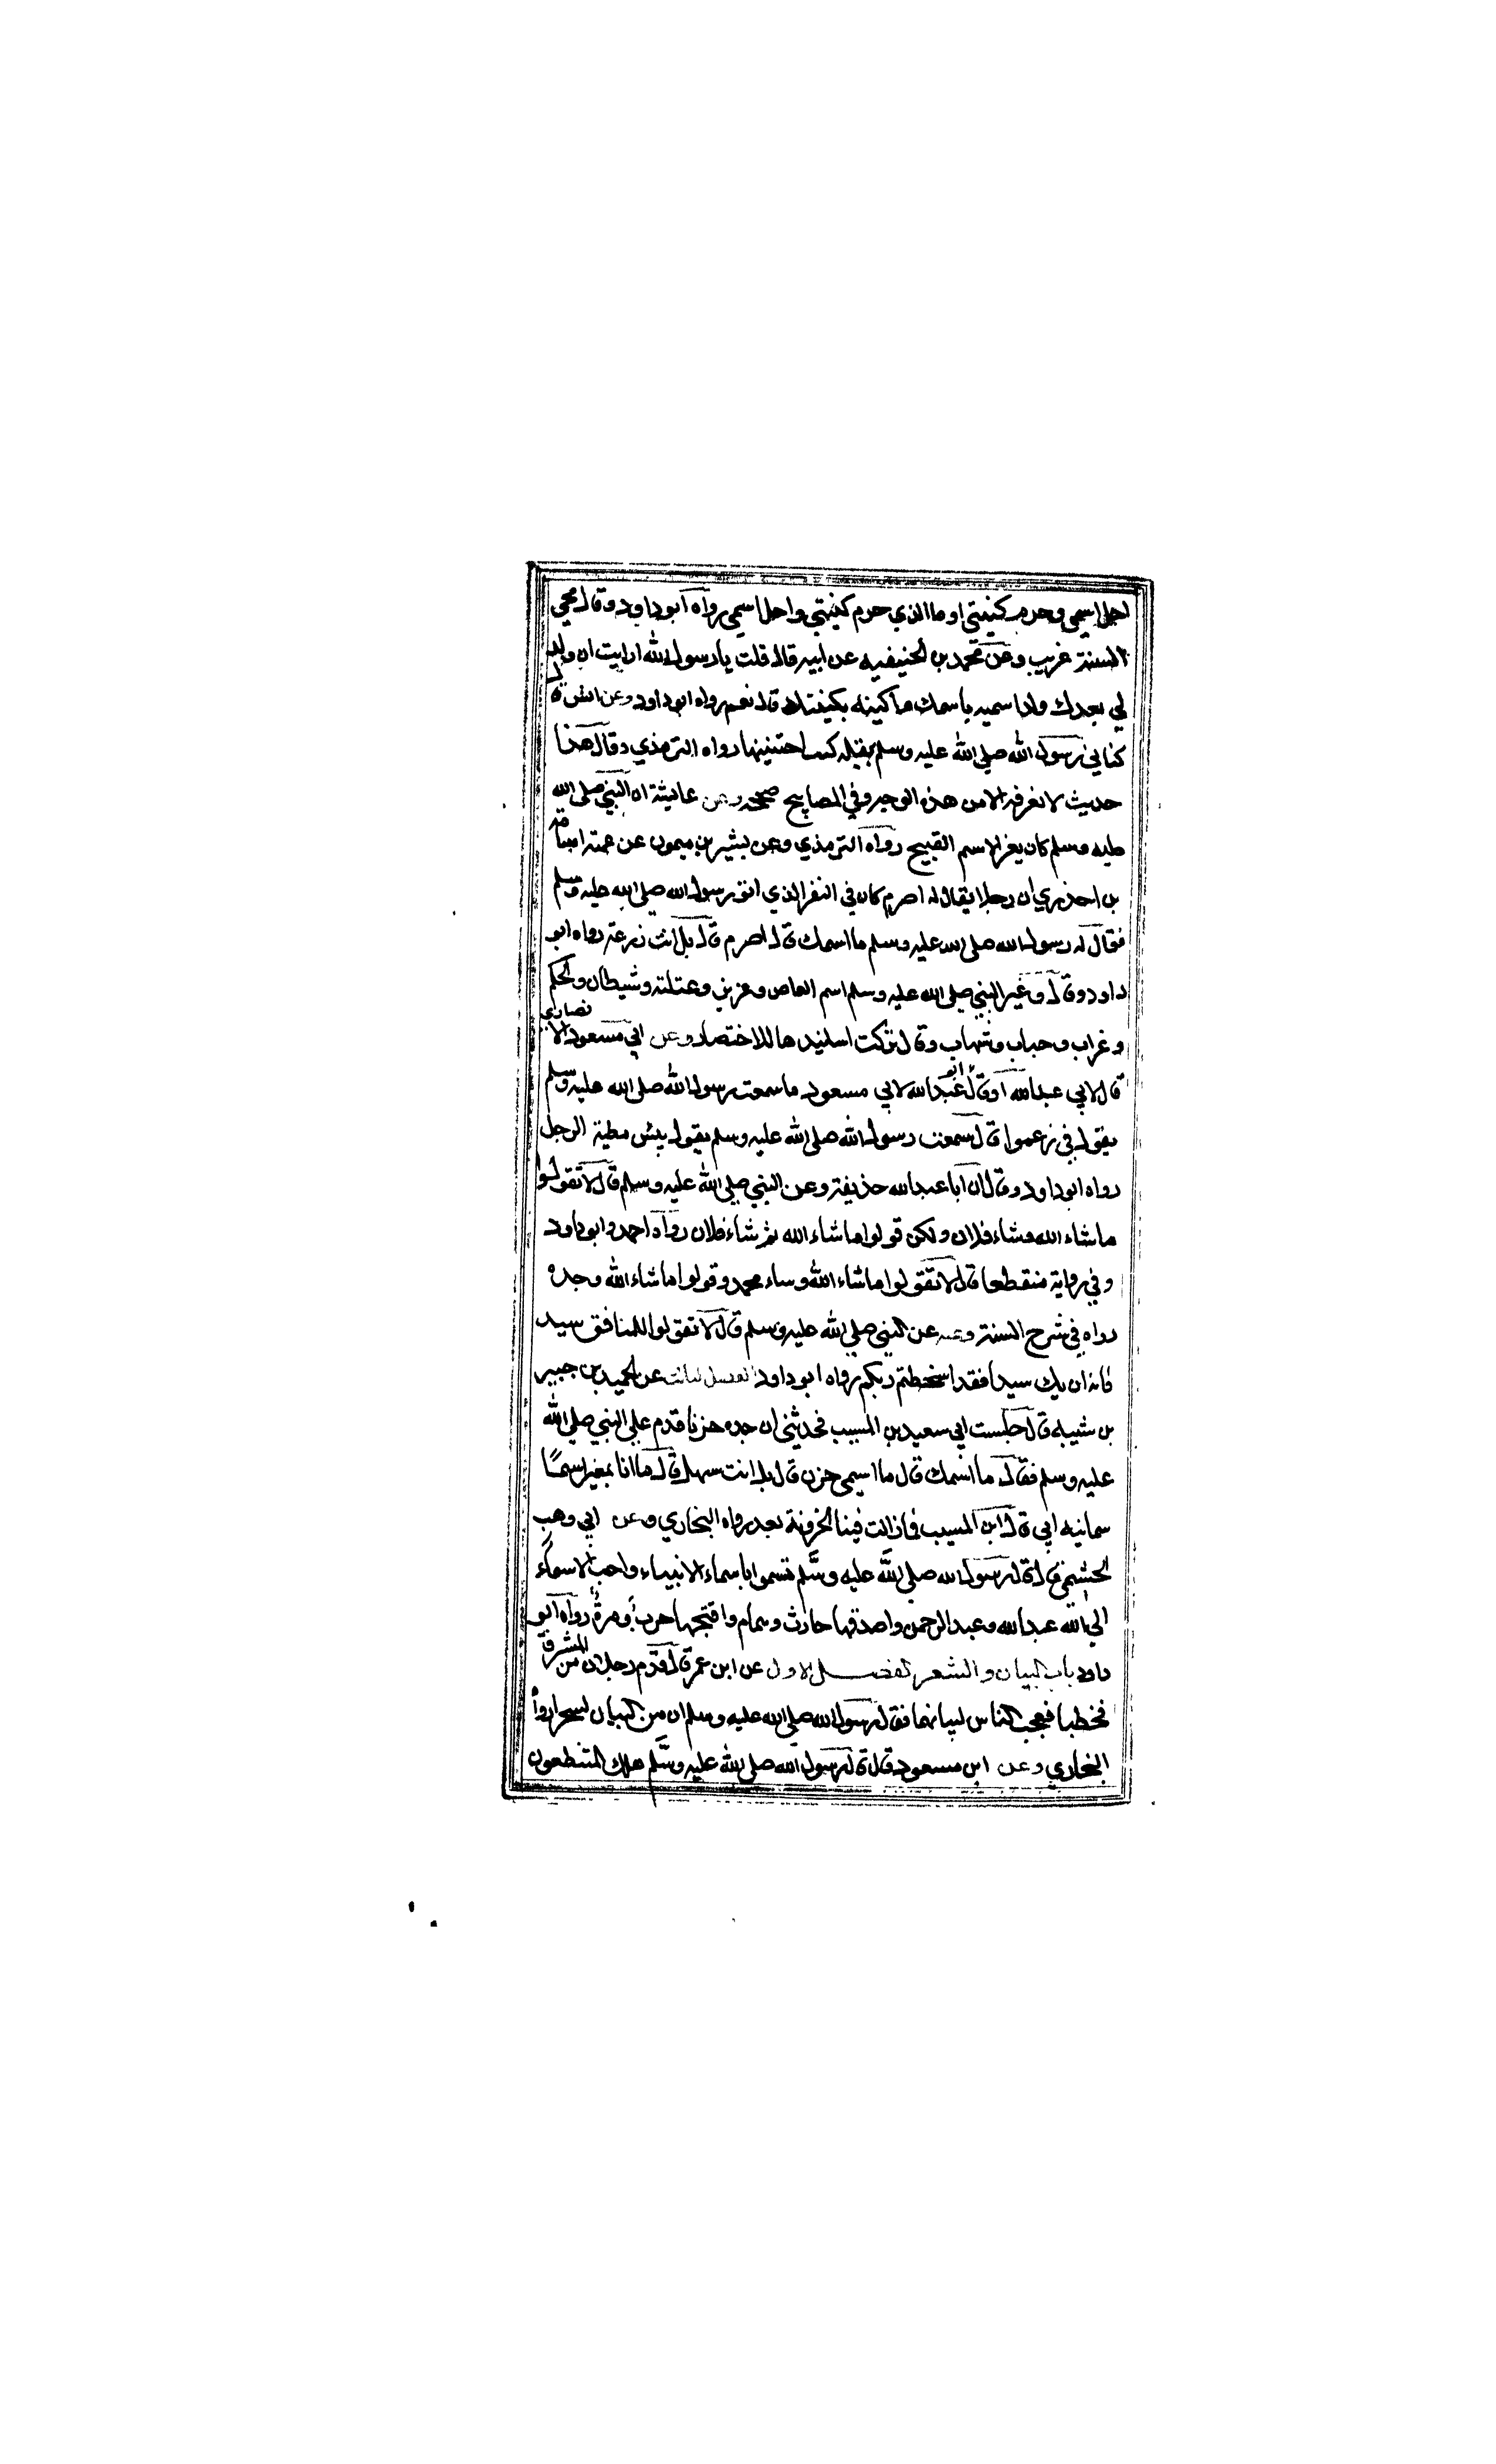 احل اسمي وحرم كنيتي او ما الذي حرم كنيتي واحل اسمي رواه ابو داود وقال محي
السنة غريب وعن محمد بن الحنيفيه عن ابيه قال قلت يا رسول الله ارايت ان ولد
لي بعدك ولدا سميه باسمك ما كينه بكينتك قال نعم رواه ابو داود وعن انس قال
كناني رسول الله صلي الله عليه وسلم ببقله كنت اجتنيها رواه الترمذي وقال هذا
حديث لا نعرفه الا من هذه الوجه وفي المصابيح صححه وعن عايشة ان النبي صلي الله
عليه وسلم كان يغير الاسم القبيح رواه الترمذي وعن بشير بن ميمون عن عمته اسامة
بن اخذري ان رجلا يقال له اصرم كان في النفر الذي اتو رسول الله صلي الله عليه وسلم
فقال له رسول الله صلي الله عليه وسلم ما اسمك قال اصرم قال بل انت زرعة رواه ابو
داود وقال وغير النبي صلي الله عليه وسلم اسم العاص وعزيز وعتلته وشيطان والحكم
وغراب وحباب وشهاب وقال تركت اسانيدها للاختصار وعن ابي مسعود الانصاري
قال لابي عبد الله او قال ابو عبد الله لابي مسعود ما سمعت رسول الله صلي الله عليه وسلم
يقول في زعموا قال سمعت رسول الله صلي الله عليه وسلم يقول بيس مطية الرجل
رواه ابو داود وقال ان ابا عبد الله حذيفة وعن النبي صلي الله عليه وسلم قال لا تقولوا
ما شاء الله وشاء فلان ولكن قولوا ما شاء الله ثم شاء فلان رواه احمد وابو داود
وفي رواية منقطعا قال لا تقولوا ما شاء الله وساء محمد وقولوا ما شاء الله وحده
رواه في شرح السنة وعنه عن النبي صلي الله عليه وسلم قال لا تقولوا للمنافق سيد
فانه ان يك سيدا فقد اسخطتم ربكم رواه ابو داود الفصل الثالث عن الحميد بن جبير
بن شيبه قال جلست الي سعيد بن المسيب فحدثني ان جده حزنا قدم علي النبي صلي الله
عليه وسلم فقال ما اسمك قال ما اسمي حزن قال بل انت سهل قال ما انا بمغير اسمًا
سمانيه ابي قال ابن المسيب فما زالت فينا الحزونة بعد رواه البخاري وعن ابي وهب
الجشمي قال قال رسول الله صلي الله عليه وسلم تسموا باسماء الانبياء واحب الاسماء
الي الله عبد الله وعبد الرحمن واصدقها حارث وهمام واقبحها حرب ومرة رواه ابو
داود باب البيان والشعر الفصل الاول عن ابن عمر قال قدم رجلان من المشرق
فخطبا فعجب الناس لبيانهما فقال رسول الله صلي الله عليه وسلم ان من البيان لسحرا رواه
البخاري وعن ابن مسعود قال قال رسول الله صلي الله عليه وسلم هلك المتنطعون